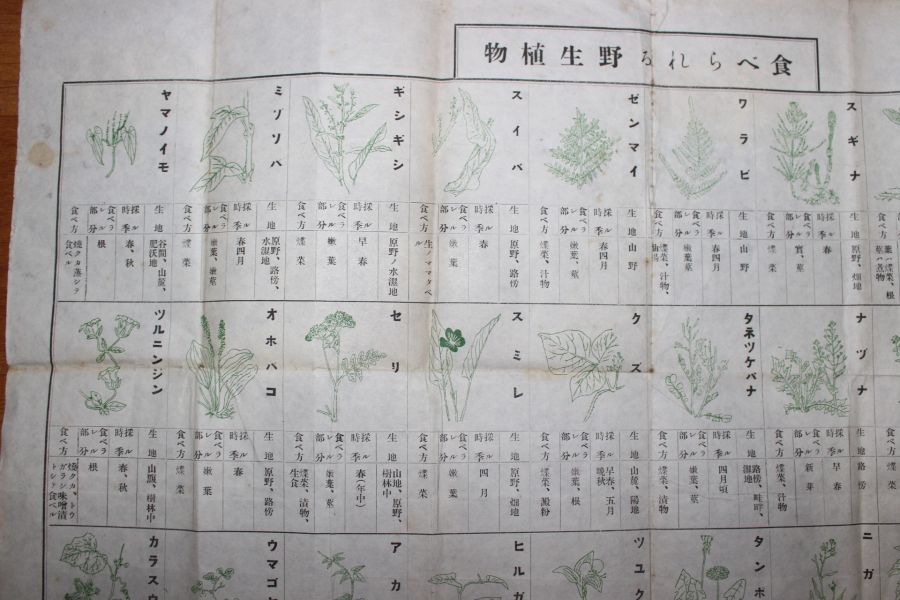 食べられる野生植物
スギナ
生地 原野、畑地
採ル時季 春
食ベラレル部分 實、莖
ワラビ
生地 山野
採ル時季 春四月
食ベラレル部分 嫩葉莖
ゼンマイ
生地 山野
採ル時季 春四月
食ベラレル部分 嫩葉、莖
食ベ方 煠菜、汁物
スイバ
生地 原野、路傍
採ル時季 春
食ベラレル部分 嫩葉
食ベ方 生ノママタベル
ギシギシ
生地 原野ノ水濕地
採ル時季 早春
食ベラレル部分 嫩葉
食ベ方 煠菜
ミゾソバ
生地 原野、路傍、水濕地
採ル時季 春四月
食ベラレル部分 嫩葉、嫩莖
食ベ方 煠菜
ヤマノイモ
生地 谷間、山麓、肥沃地
採ル時季 春、秋
食ベラレル部分 根
食ベ方 燒クカ蒸シテ食ベル
ナヅナ
生地 路傍
採ル時季 早春
食ベラレル部分 新芽
食ベ方 煠菜、汁物
タネツケバナ
生地 路傍、畦畔、濕地
採ル時季 四月頃
食ベラレル部分 嫩葉、莖
食ベ方 煠菜、漬物
クズ
生地 山麓、陽地
採ル時季 早春、五月 晩秋
食ベラレル部分 嫩葉、根
食ベ方 煠菜、澱粉
スミレ
生地 原野、畑地
採ル時季 四月
食ベラレル部分 嫩葉
食ベ方 煠菜
セリ
生地 山地、原野、樹林中
採ル時季 春(年中)
食ベラレル部分 嫩葉、莖
食ベ方 煠菜、漬物、生食
オホバコ
生地 原野、路傍
採ル時季 春
食ベラレル部分 嫩葉
食ベ方 煠菜
ツルニンジン
生地 山麓、樹林中
採ル時季 春秋
食ベラレル部分 根
ニガ
タンポ
ツユク
ヒルガ
アカ
ウマゴヤ
カラスウ